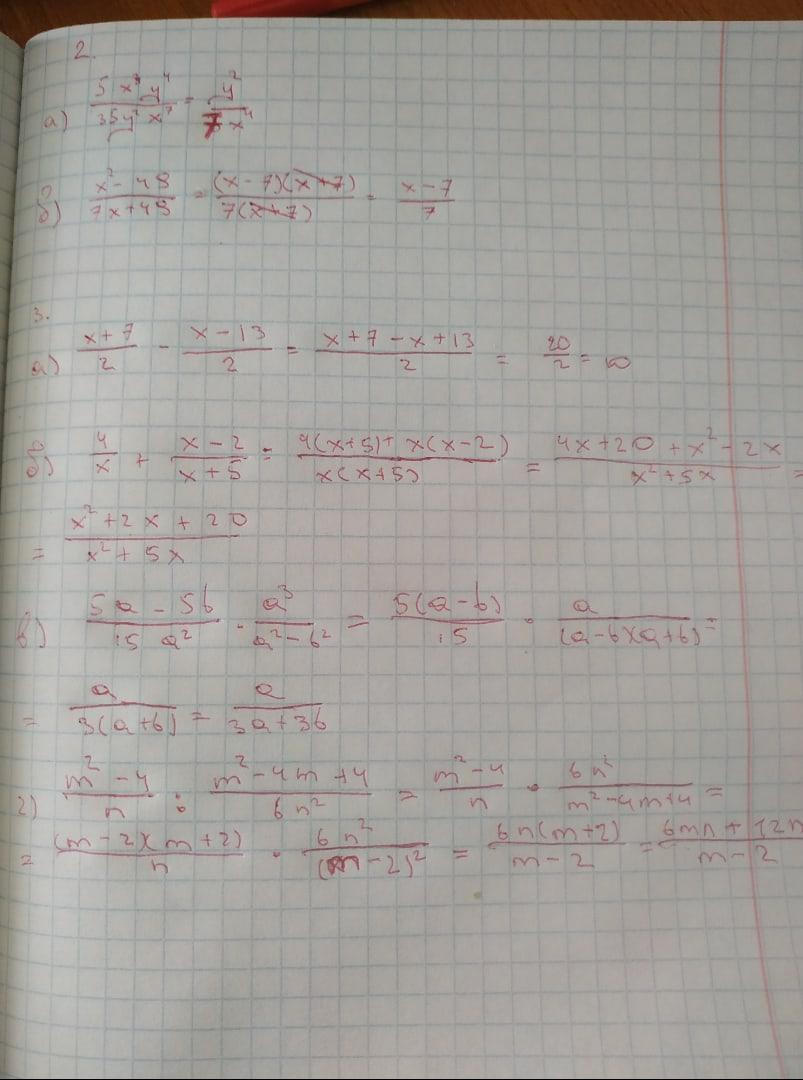 2.
а) 5x³y⁴/35y²x⁷ = y²/7x⁴
б) x²-49/7x+49 = (x-7)(x+7)/7(x+7) = x-7/7
3.
а) x+7/2 - x-13/2 = x+7-x+13/2 = 20/2 = 10
б) 4/x + x-2/x+5 = 4(x+5)+x(x-2)/x(x+5) = 4x+20+x²-2x/x²+5x =
= x²+2x+20/x²+5x
в) 5a-5b/15a² · a³/a²-b² = 5(a-b)/15 · a/(a-b)(a+b) =
= a/3(a+b) = a/3a+3b
г) m²-4/n : m²-4m+4/6n² = m²-4/n · 6n²/m²-4m+4 =
= (m-2)(m+2)/n · 6n²/(m-2)² = 6n(m+2)/m-2 = 6mn+12n/m-2